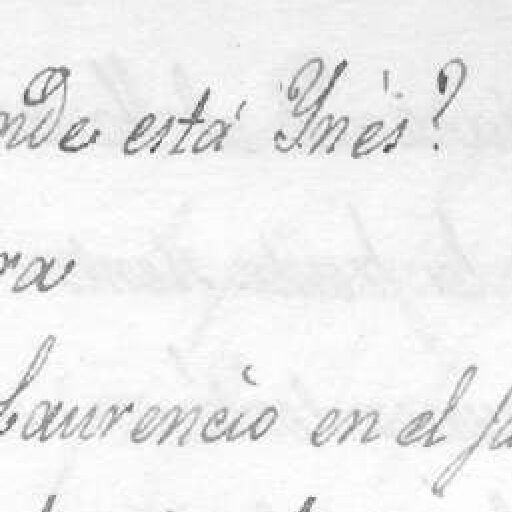 nde está Ynés?
ra
Laurencio en el